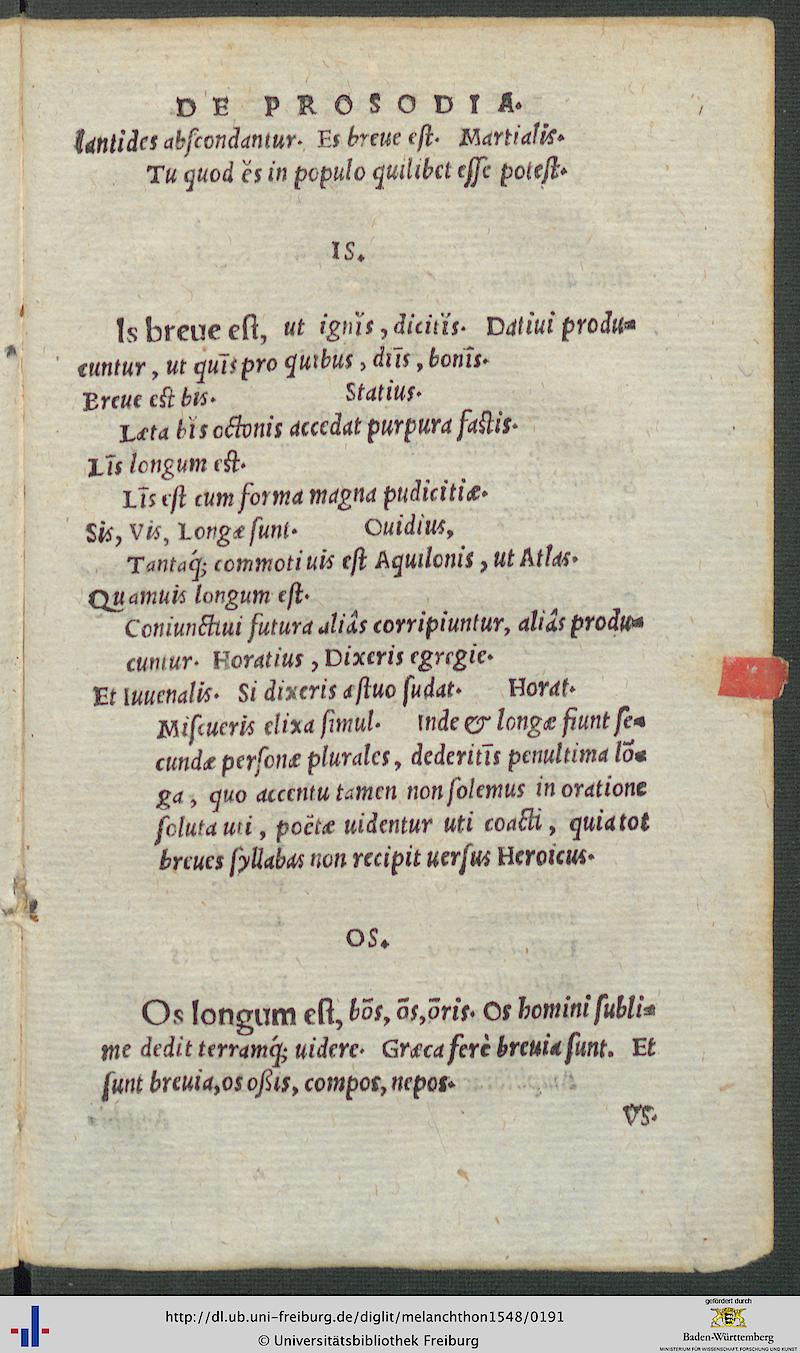 DE PROSODIA.
lantides abſcondantur. Es breue eſt. Martialis.
Tu quod ĕs in populo quilibet eſſe poteſt.
IS.
Is breue eſt, ut ignĭs, dicitĭs. Datiui produ-
cuntur, ut quīs pro quibus, diīs, bonīs.
Breue eſt bis. Statius.
Læta bĭs octonis accedat purpura faſtis.
Līs longum eſt.
Līs eſt cum forma magna pudicitiæ.
Sis, Vis, Longæ ſunt. Ouidius,
Tantaq́; commoti uis eſt Aquilonis, ut Atlas.
Quamuis longum eſt.
Coniunctiui futura aliâs corripiuntur, aliâs produ-
cuntur. Horatius, Dixeris egregie.
Et Iuuenalis. Si dixeris æſtuo ſudat. Horat.
Miſcueris elixa ſimul. Inde & longæ fiunt ſe-
cundæ perſonæ plurales, dederitīs penultima lō-
ga, quo accentu tamen non ſolemus in oratione
ſoluta uti, poëtæ uidentur uti coacti, quia tot
breues ſyllabas non recipit uerſus Heroicus.
OS.
Os longum eſt, bōs, ōs, ōris. Os homini ſubli-
me dedit terramq́; uidere. Græca ferè breuia ſunt. Et
ſunt breuia, os oſsis, compos, nepos.
VS.
http://dl.ub.uni-freiburg.de/diglit/melanchthon1548/0191
© Universitätsbibliothek Freiburg
gefördert durch
Baden-Württemberg
MINISTERIUM FÜR WISSENSCHAFT, FORSCHUNG UND KUNST